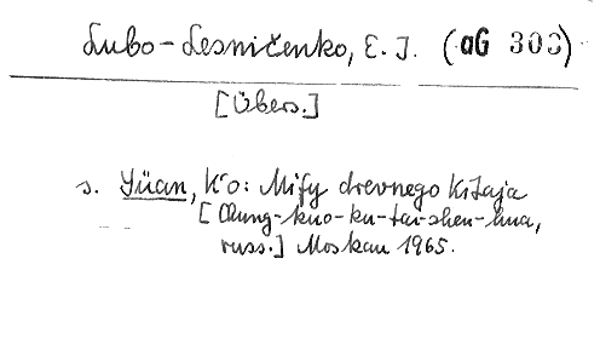 Lubo-Lesničenko, E. J. (aG 303)
[Übers.]
s. Yüan, K'o: Mify drevnego Kitaja
[Chung-kuo-ku-tai-shen-hua,
russ.] Moskau 1965.